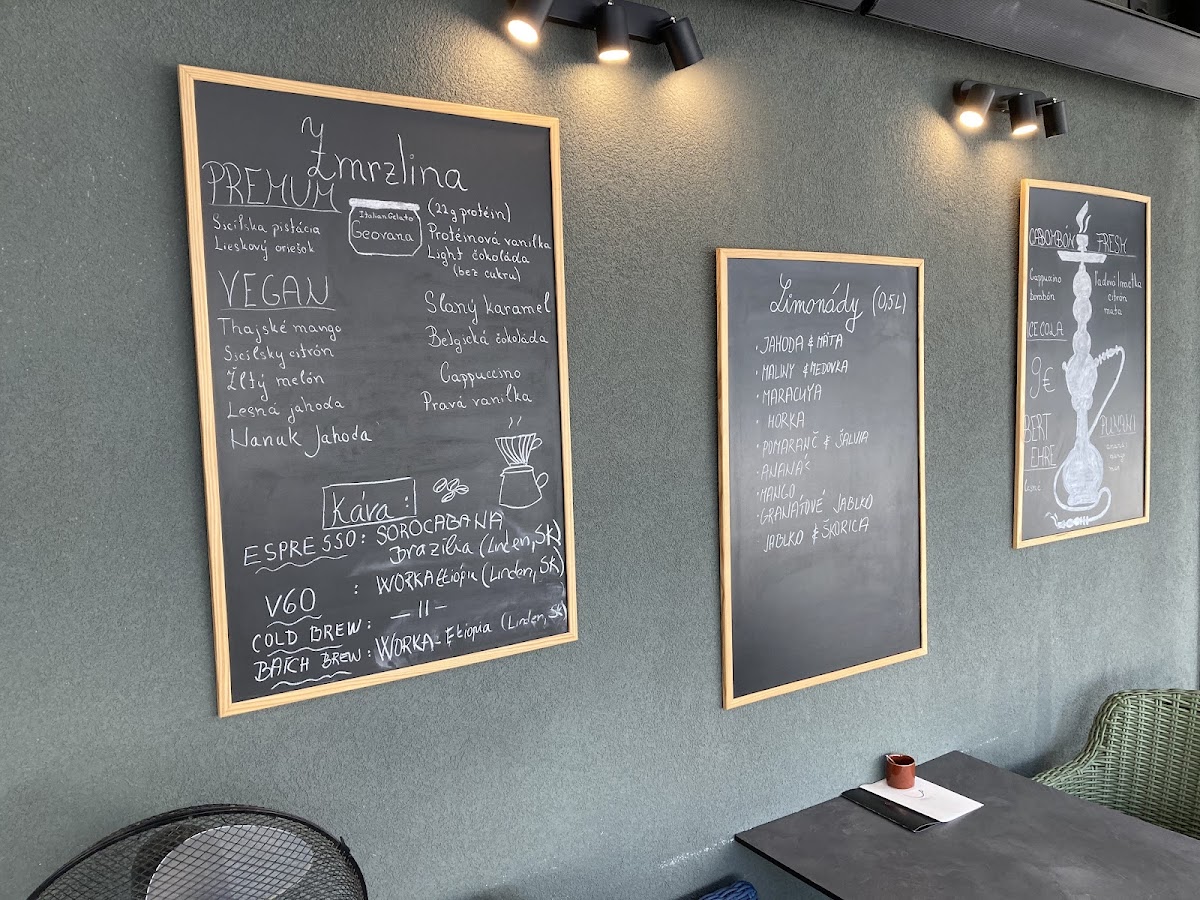 Zmrzlina
PREMIUM
Sicílska pistácia
Lieskový oriešok
Italian Gelato
Geovana
(22g protéin)
Protéinová vanilka
Light čokoláda
(bez cukru)
VEGAN
Thajské mango
Sicílsky citrón
Žltý melón
Lesná jahoda
Nanuk Jahoda
Slaný karamel
Belgická čokoláda
Cappuccino
Pravá vanilka
Káva:
ESPRESSO: SOROCABANA
Brazília (Linden, SK)
V60 : WORKA Etiópia (Linden, SK)
COLD BREW: — 11 —
BATCH BREW: WORKA - Etiopia (Linden, SK)
Limonády (0,5L)
· JAHODA & MÄTA
· MALINY & MEDOVKA
· MARACUYA
· HORKA
· POMARANČ & ŠALVIA
· ANANÁS
· MANGO
· GRANÁTOVÉ JABLKO
JABLKO & ŠKORICA
FRESH
Cappuccino
bombón
citrón
mata
ICE COLA
9€
BERT
EHRE
PUNANI